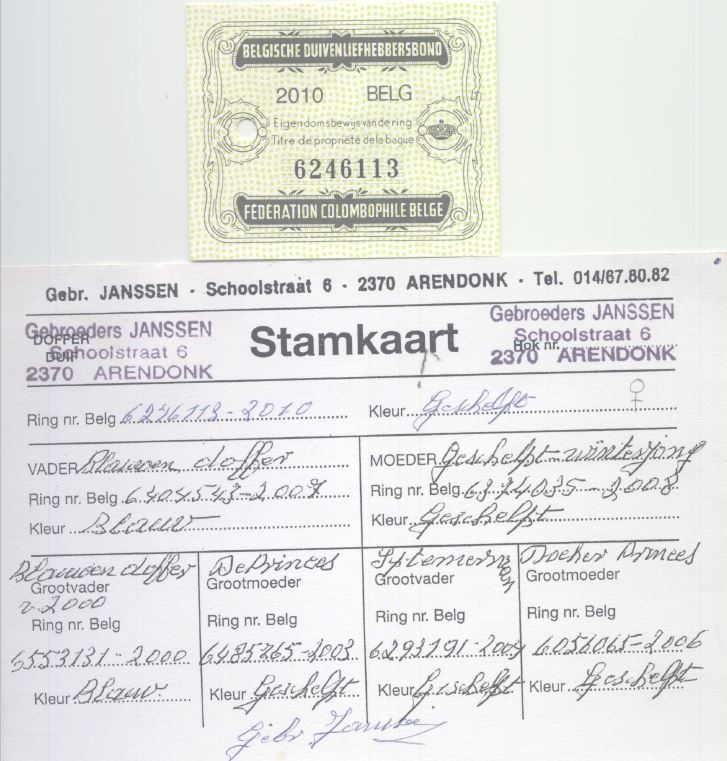 BELGISCHE DUIVENLIEFHEBBERSBOND
2010 BELG
Eigendomsbewijs van de ring
Titre de propriété de la bague
6246113
FÉDÉRATION COLOMBOPHILE BELGE
Gebr. JANSSEN - Schoolstraat 6 - 2370 ARENDONK - Tel. 014/67.80.82
Gebroeders JANSSEN
DOFFER
Schoolstraat 6
DUIF
2370 ARENDONK
Stamkaart
Gebroeders JANSSEN
Schoolstraat 6
Hok nr.
2370 ARENDONK
Ring nr. Belg 6246113-2010 Kleur Geschelpt ♀
VADER Blauwen doffer
Ring nr. Belg 6404543-2007
Kleur Blauw
MOEDER Geschelpt winterjong
Ring nr. Belg 6374035-2008
Kleur Geschelpt
Blauwen doffer
Grootvader
v. 2000
Ring nr. Belg
6553131-2000
Kleur Blauw
De Princes
Grootmoeder
Ring nr. Belg
6485265-2003
Kleur Geschelpt
Grootvader
Ring nr. Belg
Kleur Geschelpt
Docher Princes
Grootmoeder
Ring nr. Belg
6056065-2006
Kleur Geschelpt
Gebr. Janssen